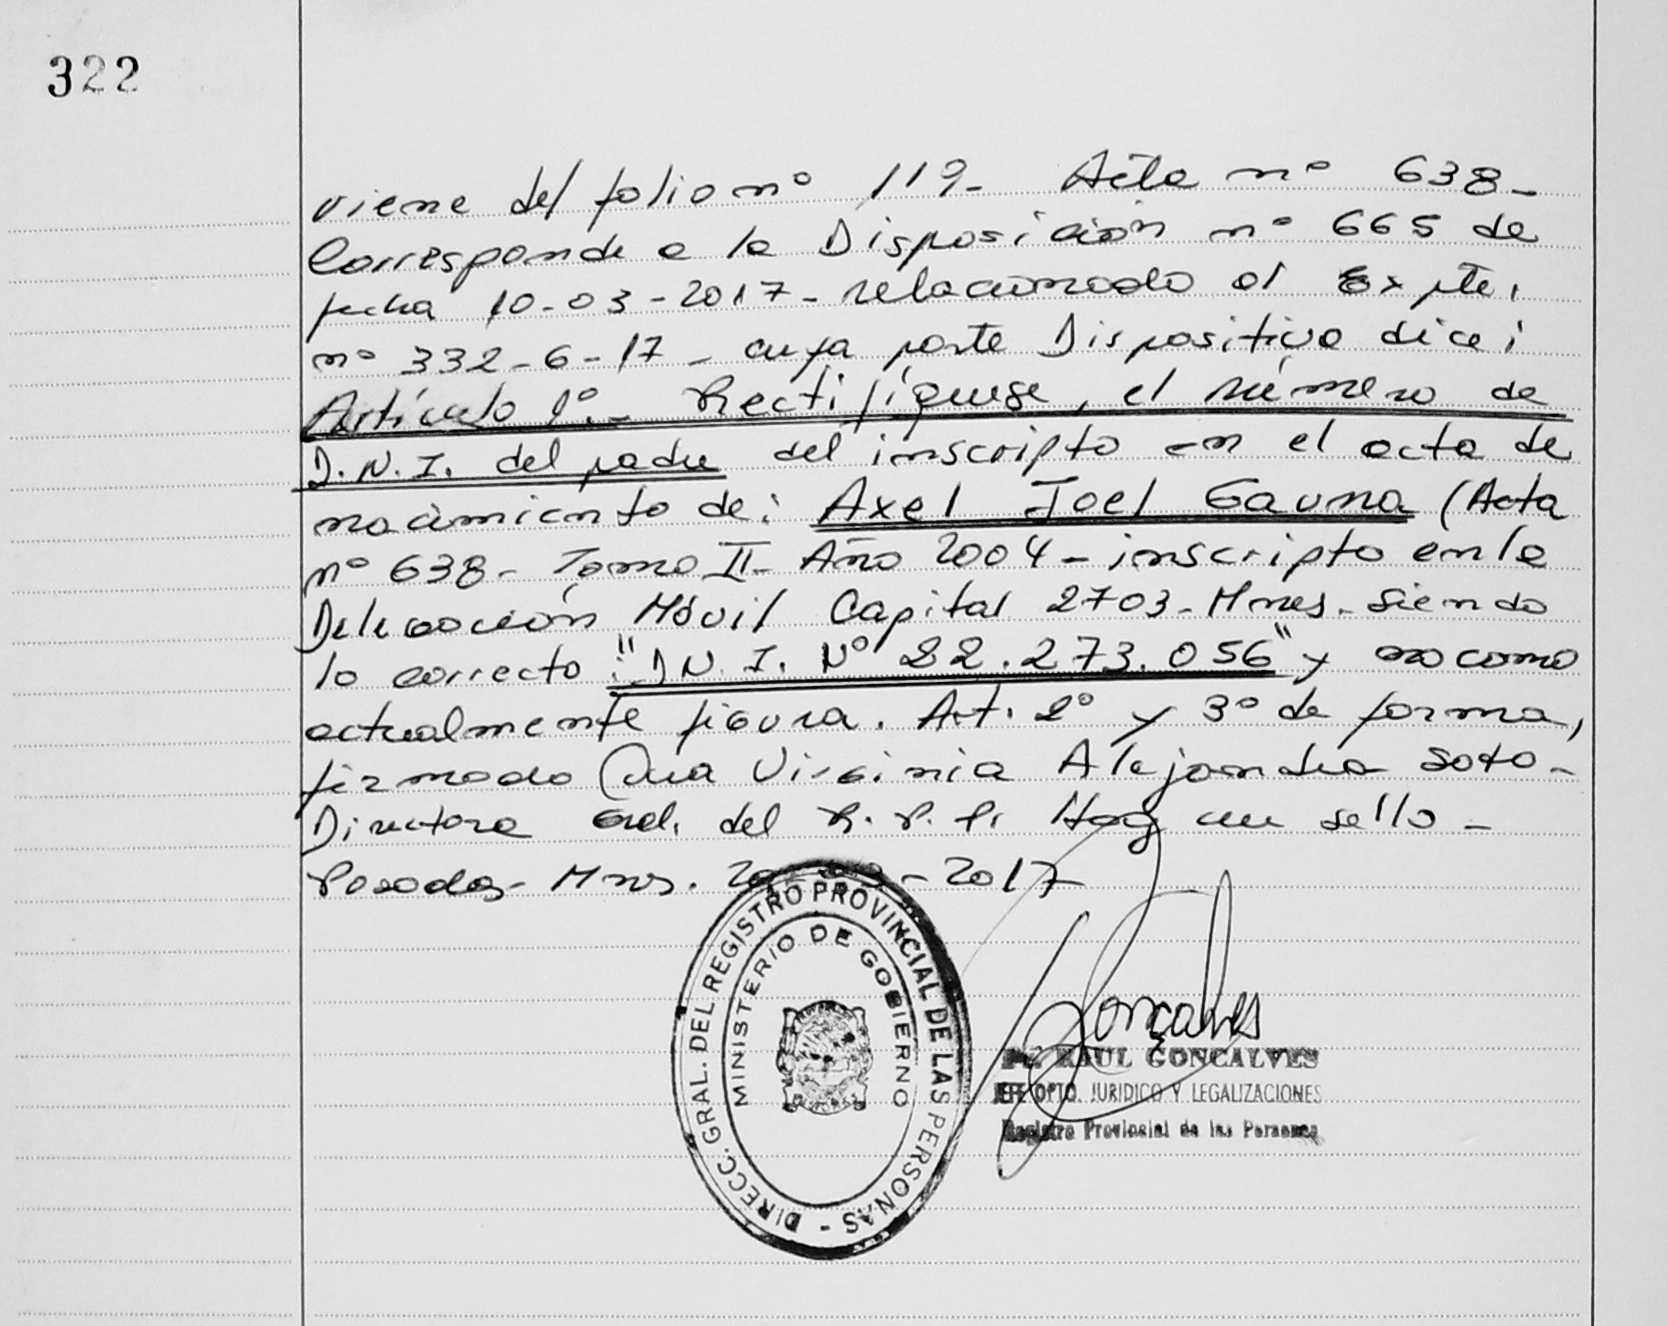 322
viene del folio nº 119- Acta nº 638-
Corresponde a la Disposición nº 665 de
fecha 10-03-2017- relacionado al Expte.
nº 332-G-17- cuya parte Dispositiva dice:
Artículo 1º.- Rectifíquese, el número de
D.N.I. del padre del inscripto en el acta de
nacimiento de: Axel Joel Gauna (Acta
nº 638- Tomo II- Año 2004- inscripto en la
Delegación Móvil Capital 2703-Mnes. Siendo
lo correcto: "D.N.I. Nº 22.273.056" y no como
actualmente figura. Art. 2º y 3º de forma,
firmado Virginia Alejandra Soto-
Directora Gral. del R.P.P. Hay un sello-
Posadas- Mnes. 2017
DIRECC. GRAL. DEL REGISTRO PROVINCIAL DE LAS PERSONAS -
MINISTERIO DE GOBIERNO
Goncalves
RAUL GONCALVES
JEFE DPTO. JURIDICO Y LEGALIZACIONES
Registro Provincial de las Personas